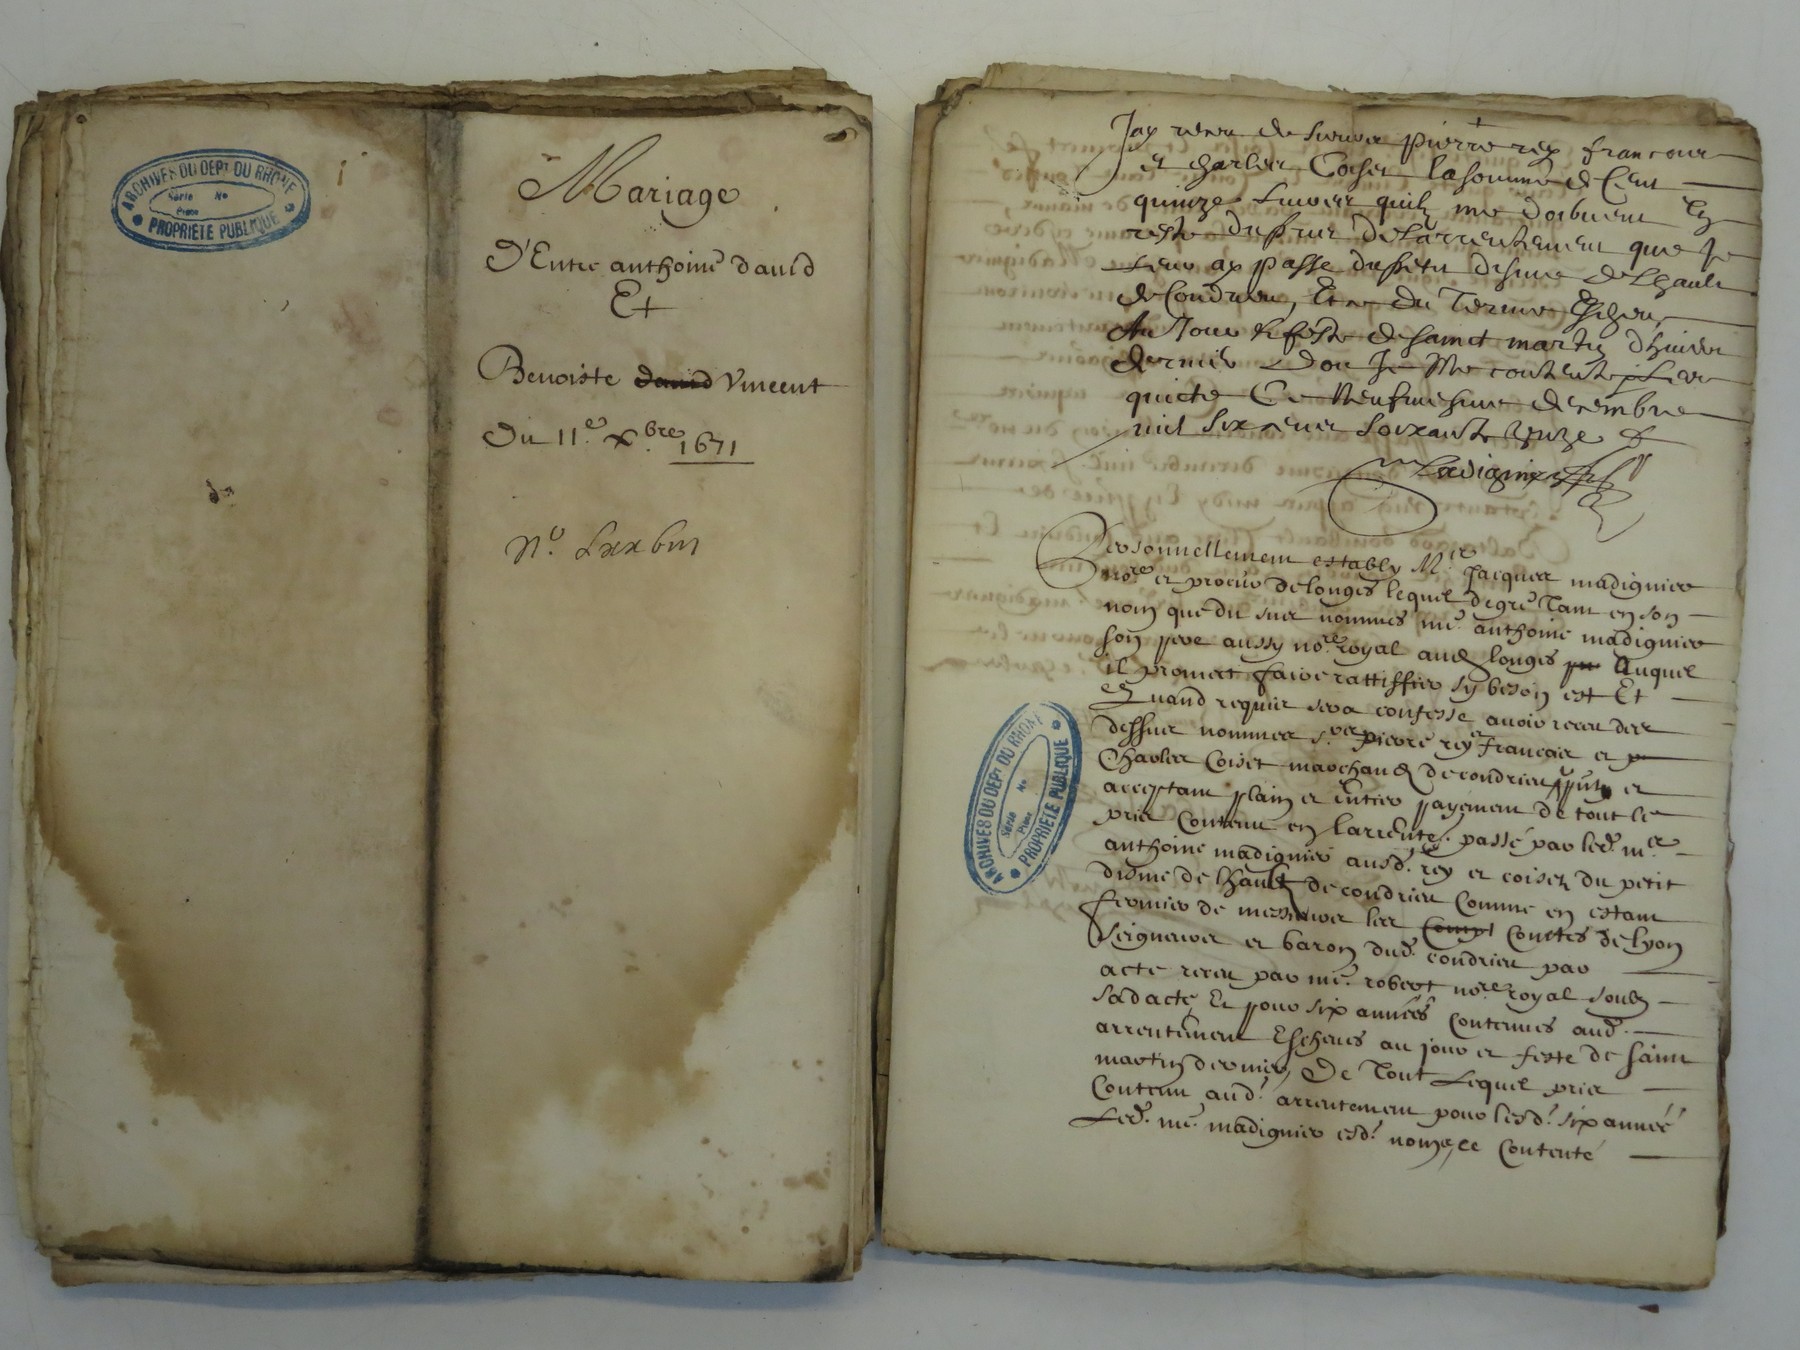 ARCHIVES DU DEPT DU RHONE
Série No
Pièce
PROPRIÉTÉ PUBLIQUE
Mariage
D'Entre anthoine david
Et
Benoiste david Vincent
Du 11e. xbre. 1671
No. Lxxbiii
Jay receu de sieurs pierre rey francois
et charles Coiset la somme de Cent
quinze livres quilz me doibvent
reste du prix de larrentement que Je
Leur ay passe du petit disme de Lhault
de Condrieu, Et ce du Terme Escheu
Au Jour & feste de sainct martin dhiver
dernier Don Je Me contente
quicte Ce Neufviesme decembre
mil six cens soixante unze
Madignier
Personnellement estably Mre. Jacques madignier
nore et procur de longes lequel de gré Tant en son
nom que du sieur nommes me. anthoine madignier
son pere aussy nore. royal aud longes Auquel
il promect faire rattiffier sy beson est Et
quand requis sera confesse avoir receu des
dessus nommes srs pierre rey francois et
Charles Coiset marchand de condrieu et
acceptant plain et entier payement de tout le
prix Contenu en larrente. passé par led. me
anthoine madignier ausd. rey et coiset du petit
disme de lhault de condrieu Comme en estant
fermier de messieurs les Comptes de lyon
seigneurs et baron dud. condrieu par
acte receu par me. robert nore royal
sad acte, Et pour six années Contenues aud.
arrentement Escheues au jour et feste de saint
martin dernier, De Tout Lequel prix
Contenu aud. arrentement pour lesd. six années
Led. me. madignier esd. noms, ce Contente
ARCHIVES DU DEPT DU RHONE
Série No
Pièce
PROPRIÉTÉ PUBLIQUE